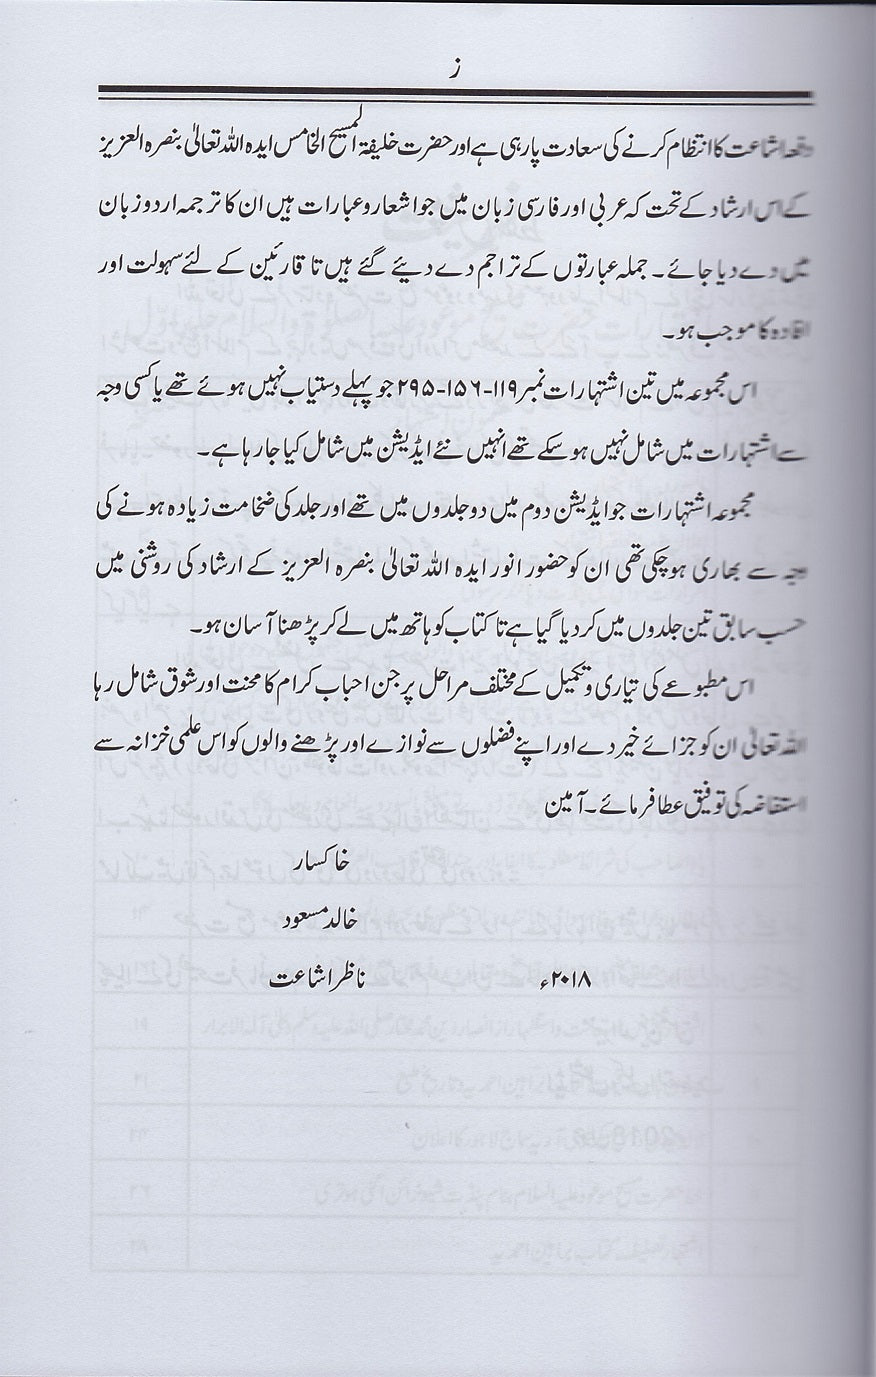 ز
دفعہ اشاعت کا انتظام کرنے کی سعادت پا رہی ہے اور حضرت خلیفۃ المسیح الخامس ایدہ اللہ تعالیٰ بنصرہ العزیز
کے اس ارشاد کے تحت کہ عربی اور فارسی زبان میں جو اشعار و عبارات ہیں ان کا ترجمہ اردو زبان
میں دے دیا جائے۔ جملہ عبارتوں کے تراجم دے دیئے گئے ہیں تا قارئین کے لئے سہولت اور
افادہ کا موجب ہو۔
اس مجموعہ میں تین اشتہارات نمبر ۱۱۹-۱۵۶-۲۹۵ جو پہلے دستیاب نہیں ہوئے تھے یا کسی وجہ
سے اشتہارات میں شامل نہیں ہو سکے تھے انہیں نئے ایڈیشن میں شامل کیا جا رہا ہے۔
مجموعہ اشتہارات جو ایڈیشن دوم میں دو جلدوں میں تھے اور جلد کی ضخامت زیادہ ہونے کی
وجہ سے بھاری ہو چکی تھی ان کو حضور انور ایدہ اللہ تعالیٰ بنصرہ العزیز کے ارشاد کی روشنی میں
حسب سابق تین جلدوں میں کر دیا گیا ہے تا کتاب کو ہاتھ میں لے کر پڑھنا آسان ہو۔
اس مطبوعے کی تیاری و تکمیل کے مختلف مراحل پر جن احباب کرام کا محنت اور شوق شامل رہا
اللہ تعالیٰ ان کو جزائے خیر دے اور اپنے فضلوں سے نوازے اور پڑھنے والوں کو اس علمی خزانہ سے
استفاضہ کی توفیق عطا فرمائے۔ آمین
خاکسار
خالد مسعود
۲۰۱۸ء ناظر اشاعت